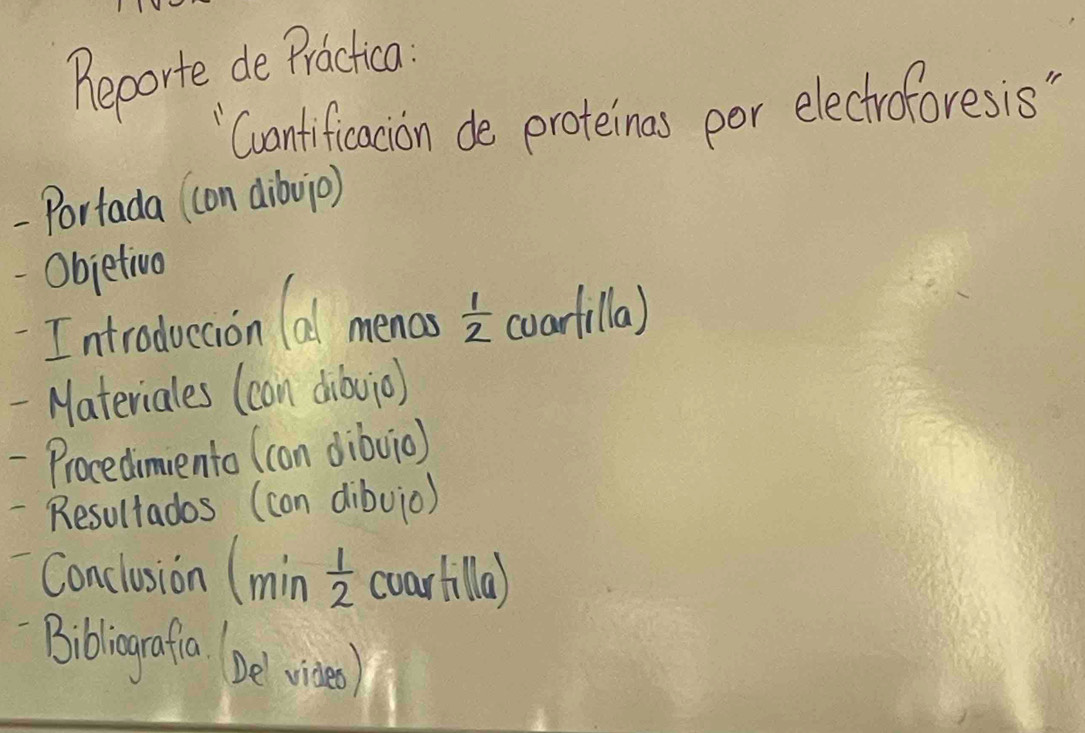 Reporte de Práctica:
"Cuantificación de proteínas por electroforesis"
- Portada (con dibujo)
- Objetivo
- Introducción (al menos 1/2 cuartilla)
- Materiales (con dibujo)
- Procedimiento (con dibujo)
- Resultados (con dibujo)
- Conclusión (min 1/2 cuartilla)
- Bibliografía. (Del video)